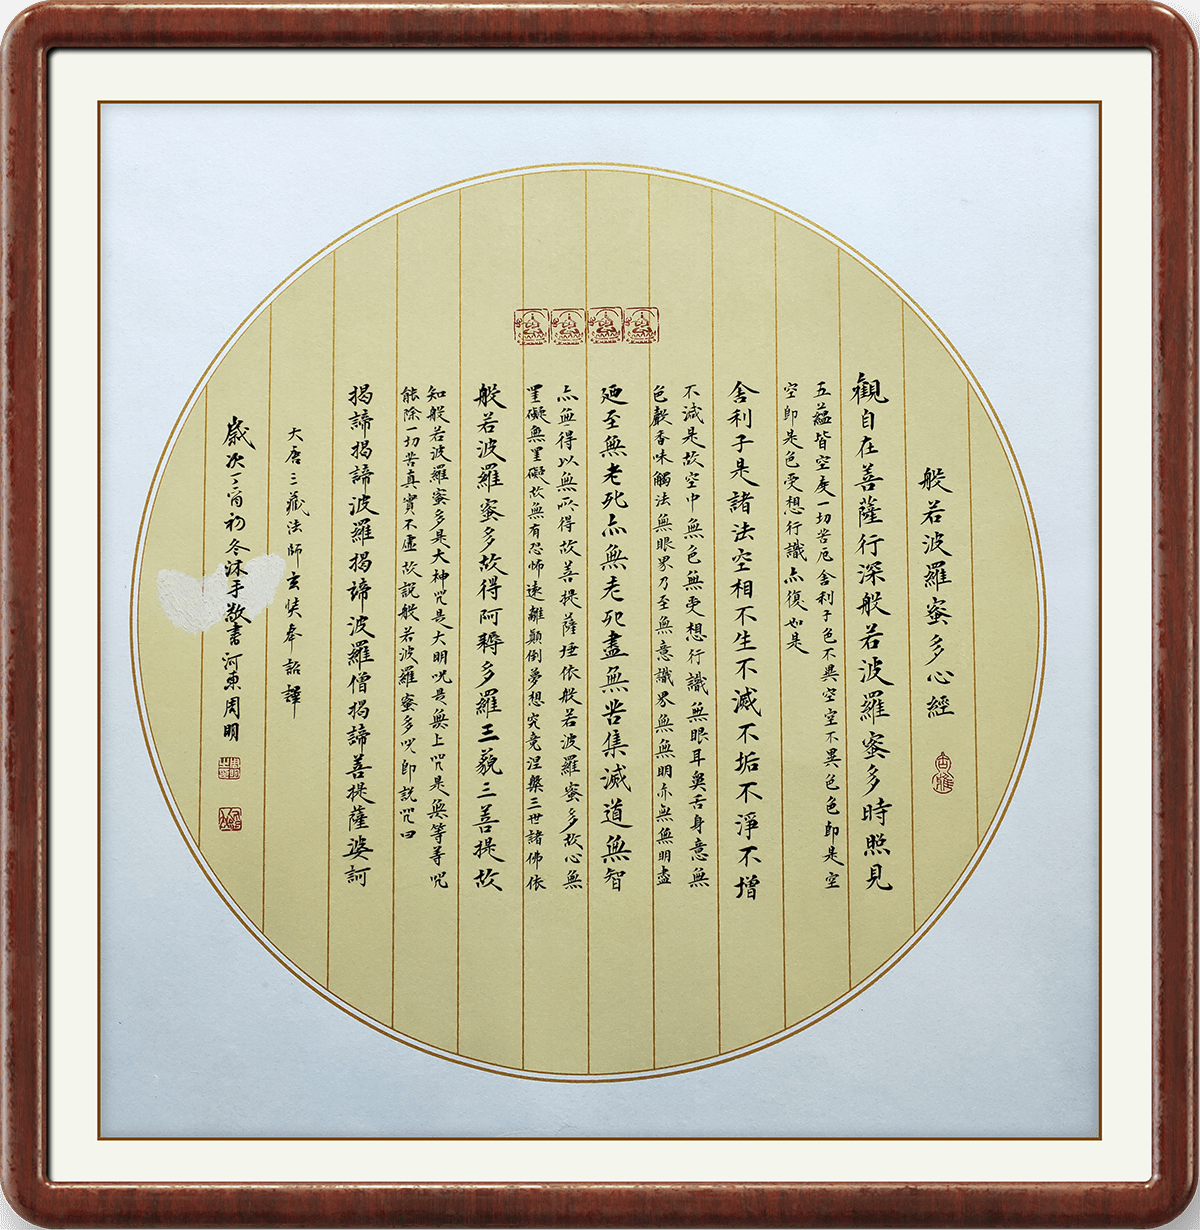 般若波羅蜜多心經
觀自在菩薩行深般若波羅蜜多時照見
五蘊皆空度一切苦厄舍利子色不異空空不異色色即是空
空即是色受想行識亦復如是
舍利子是諸法空相不生不滅不垢不淨不增
不減是故空中無色無受想行識無眼耳鼻舌身意無
色聲香味觸法無眼界乃至無意識界無無明亦無無明盡
廼至無老死亦無老死盡無苦集滅道無智
亦無得以無所得故菩提薩埵依般若波羅蜜多故心無
罣礙無罣礙故無有恐怖遠離顛倒夢想究竟涅槃三世諸佛依
般若波羅蜜多故得阿耨多羅三藐三菩提故
知般若波羅蜜多是大神咒是大明咒是無上咒是無等等咒
能除一切苦真實不虛故説般若波羅蜜多咒即説咒曰
揭諦揭諦波羅揭諦波羅僧揭諦菩提薩婆訶
大唐三藏法師玄奘奉詔譯
歲次丁酉初冬沐手敬書河東周明